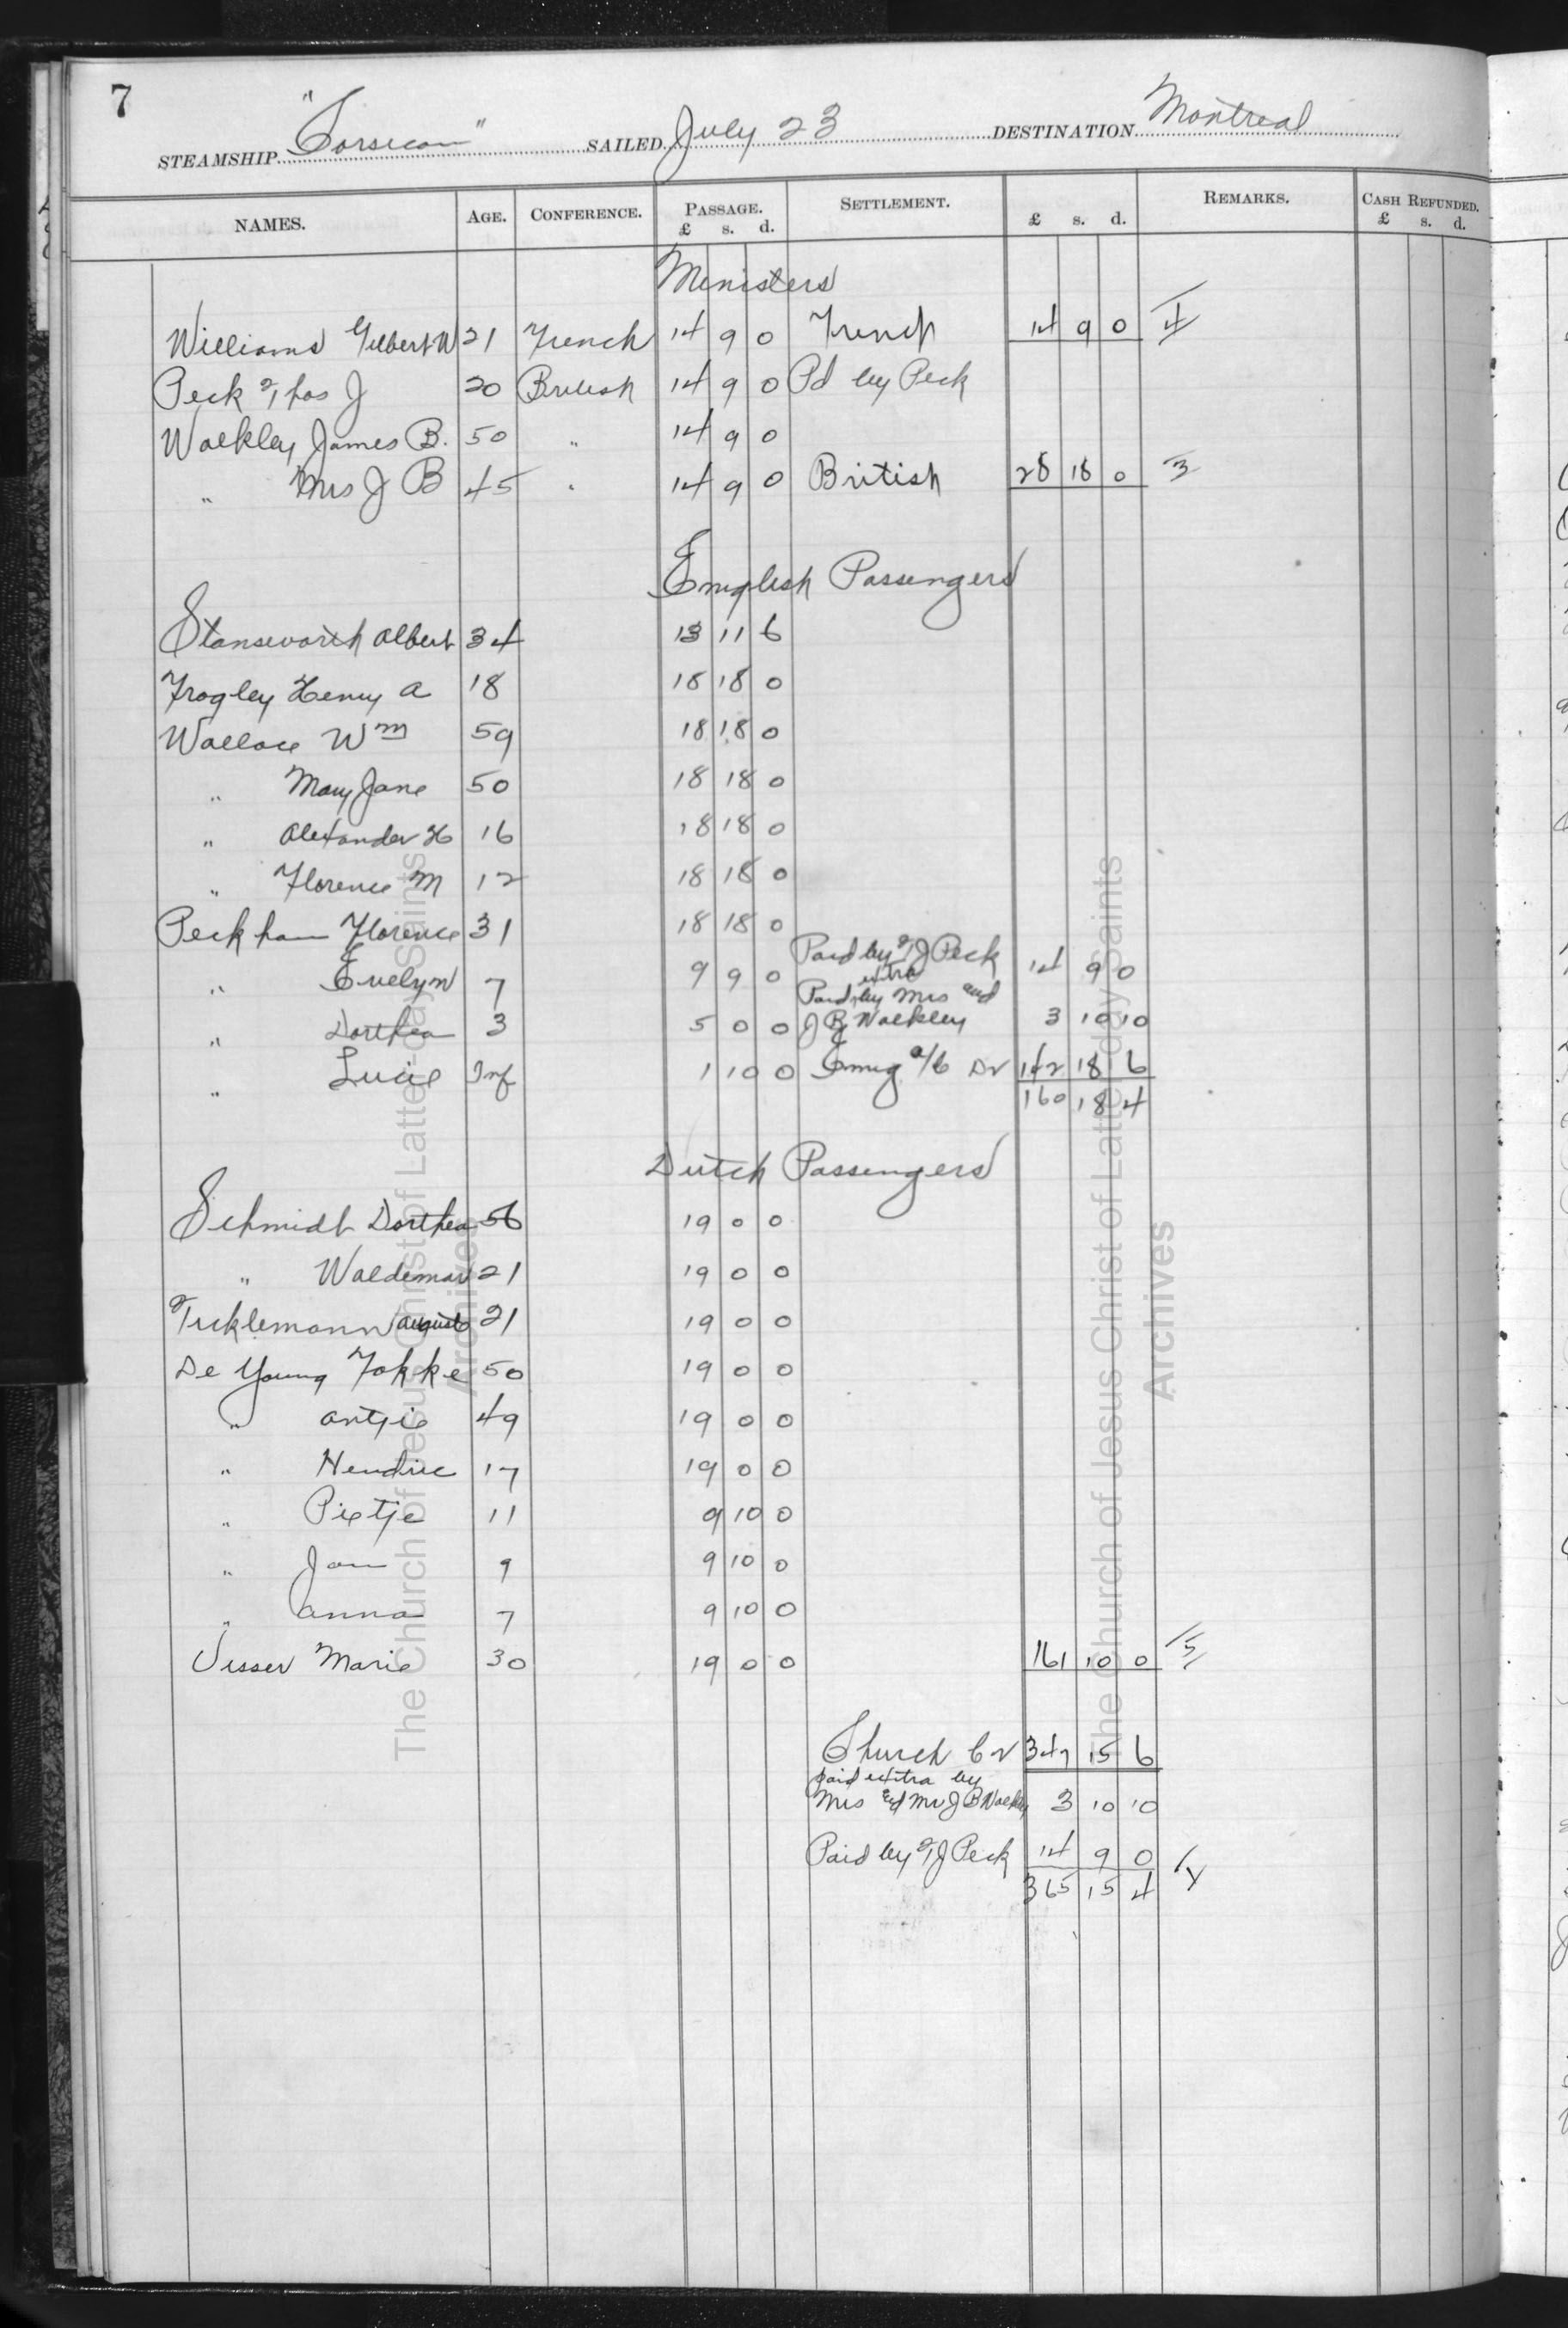 7
STEAMSHIP "Corsican" SAILED July 23 DESTINATION Montreal
NAMES. AGE. CONFERENCE. PASSAGE. £ s. d. SETTLEMENT. £ s. d. REMARKS. CASH REFUNDED. £ s. d.
Ministers
Williams Gilbert W 21 French 14 9 0 French 14 9 0 4
Peck Thos J 20 British 14 9 0 Pd by Peck
Walkley James B. 50 " 14 9 0
" Mrs J B 45 " 14 9 0 British 28 18 0 3
English Passengers
Stanseworth Albert 34 13 11 6
Frogley Henry A 18 18 18 0
Wallace Wm 59 18 18 0
" Mary Jane 50 18 18 0
" Alexander H 16 18 18 0
" Florence M 12 18 18 0
Peckham Florence 31 18 18 0
" Evelyn 7 9 9 0 Paid by T J Peck 14 9 0
" Dorthea 3 5 0 0 Paid extra by Mrs and J B Walkley 3 10 10
" Lucie Inf 1 10 0 Emig a/c Dr 142 18 6
160 18 4
Dutch Passengers
Schmidt Dorthea 56 19 0 0
" Waldemar 21 19 0 0
Ticklemann August 21 19 0 0
De Young Fokke 50 19 0 0
" Antjie 49 19 0 0
" Hendric 17 19 0 0
" Pietje 11 9 10 0
" Jan 9 9 10 0
" Anna 7 9 10 0
Visser Marie 30 19 0 0 161 10 0 5
Church Cr 347 15 6
paid extra by
Mrs and Mr J B Walkley 3 10 10
Paid by T J Peck 14 9 0
365 15 4
The Church of Jesus Christ of Latter-day Saints
Archives
The Church of Jesus Christ of Latter-day Saints
Archives